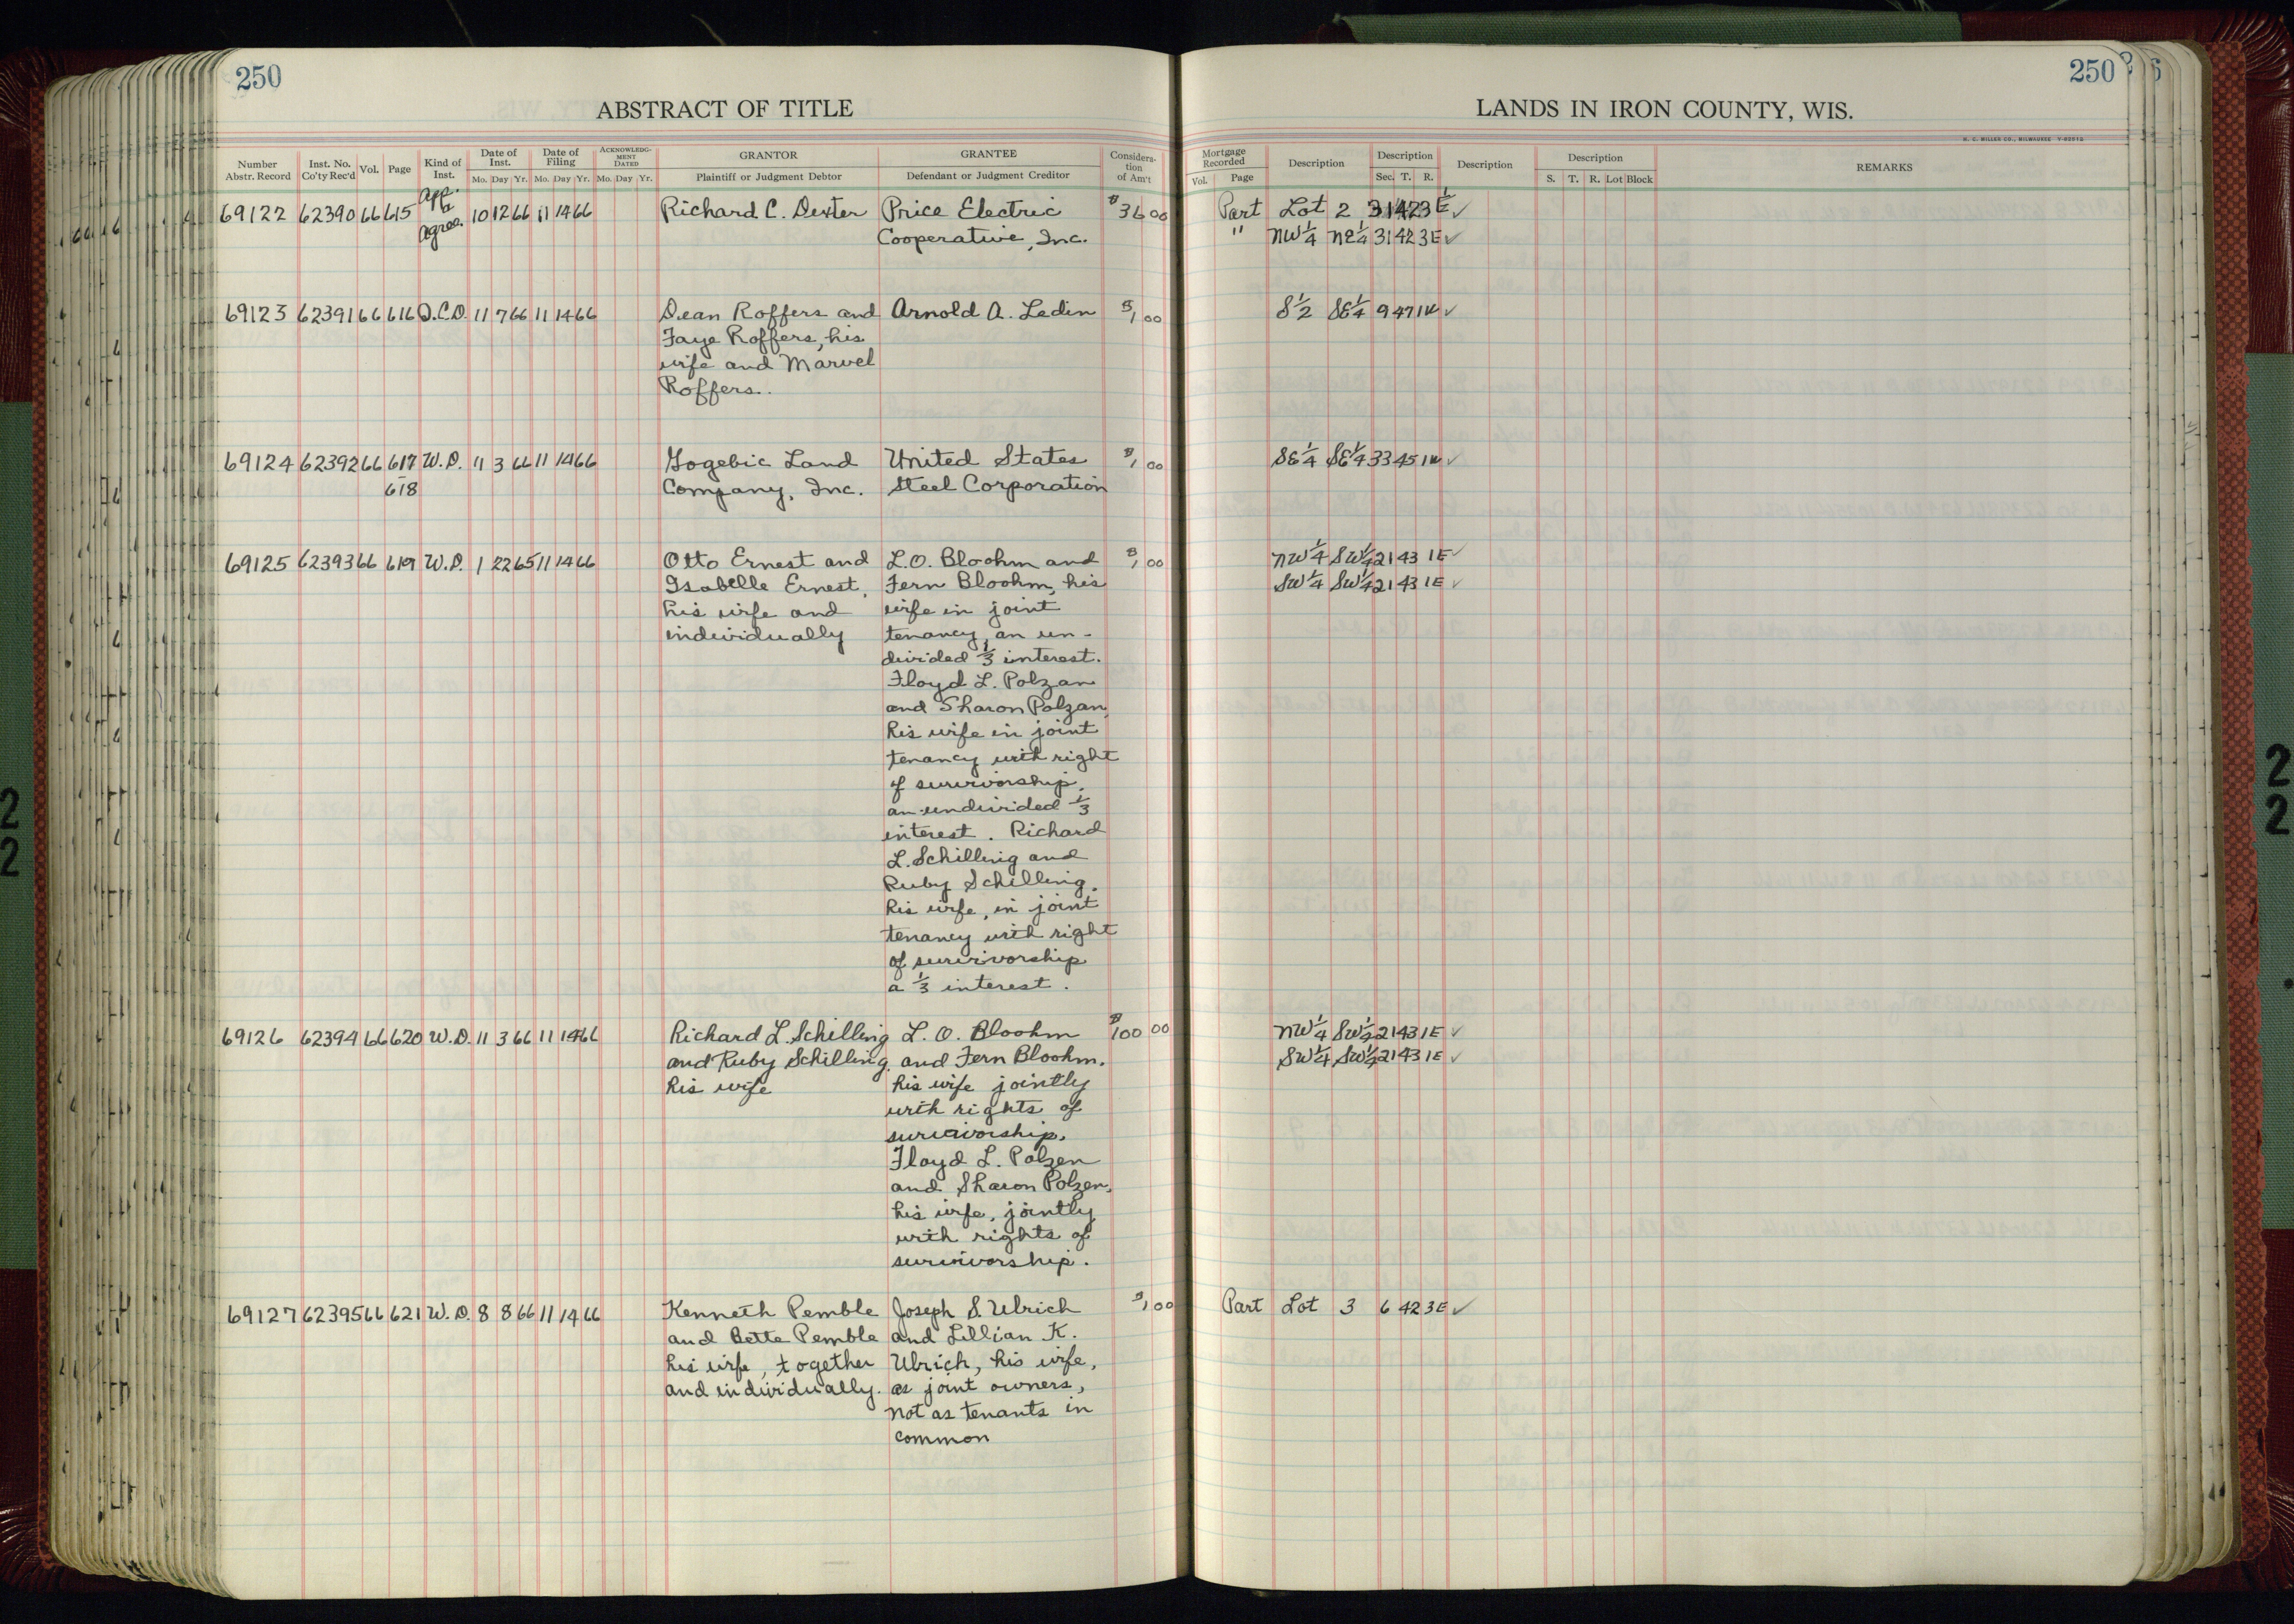 250
ABSTRACT OF TITLE
Number Abstr. Record
Inst. No. Co'ty Rec'd
Vol.
Page
Kind of Inst.
Date of Inst.
Mo. Day Yr.
Date of Filing
Mo. Day Yr.
ACKNOWLEDGMENT DATED
Mo. Day Yr.
GRANTOR
Plaintiff or Judgment Debtor
GRANTEE
Defendant or Judgment Creditor
Considera-
tion
of Am't
250
LANDS IN IRON COUNTY, WIS.
H. C. MILLER CO., MILWAUKEE
Mortgage Recorded
Vol. Page
Description
Description
Sec. T. R.
Description
Description
S. T. R. Lot Block
REMARKS
69122 62390 66 615 App. & Agree. 10 12 66 11 14 66 Richard C. Dexter Price Electric $36 00 Part Lot 2 31 42 3E ✓
Cooperative, Inc. " NW 1/4 NE 1/4 31 42 3E ✓
69123 62391 66 616 Q.C.D. 11 7 66 11 14 66 Dean Roffers and Arnold A. Ledin $1 00 S 1/2 SE 1/4 9 47 1W ✓
Faye Roffers, his
wife and Marvel
Roffers.
69124 62392 66 617 W.D. 11 3 66 11 14 66 Gogebic Land United States $1 00 SE 1/4 SE 1/4 33 45 1W ✓
618 Company, Inc. Steel Corporation
69125 62393 66 619 W.D. 1 22 65 11 14 66 Otto Ernest and L.O. Bloohm and $1 00 NW 1/4 SW 1/4 21 43 1E ✓
Isabelle Ernest, Fern Bloohm, his SW 1/4 SW 1/4 21 43 1E ✓
his wife and wife in joint
individually tenancy, an un-
divided 1/3 interest.
Floyd L. Polzan
and Sharon Polzan,
his wife in joint
tenancy with right
of survivorship,
an undivided 1/3
interest. Richard
L. Schilling and
Ruby Schilling,
his wife, in joint
tenancy with right
of survivorship
a 1/3 interest.
69126 62394 66 620 W.D. 11 3 66 11 14 66 Richard L. Schilling L. O. Bloohm $100 00 NW 1/4 SW 1/4 21 43 1E ✓
and Ruby Schilling, and Fern Bloohm, SW 1/4 SW 1/4 21 43 1E ✓
his wife his wife jointly
with rights of
survivorship.
Floyd L. Polzen
and Sharon Polzen,
his wife, jointly
with rights of
survivorship.
69127 62395 66 621 W.D. 8 8 66 11 14 66 Kenneth Pemble Joseph S. Ulrich $1 00 Part Lot 3 6 42 3E ✓
and Bette Pemble and Lillian K.
his wife, together Ulrich, his wife,
and individually. as joint owners,
not as tenants in
common
22
22